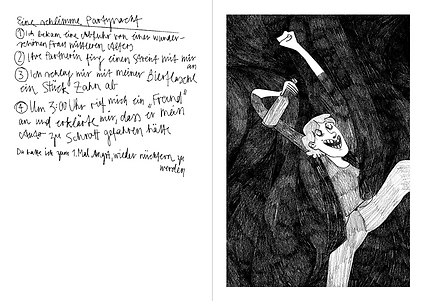 Eine schlimme Partynacht
① Ich bekam eine Abfuhr von einer wunder-
schönen Frau mittleren Alters
② Ihre Partnerin fing einen Streit mit mir
an
③ Ich schlug mir mit meiner Bierflasche
ein Stück Zahn ab
④ Um 3:00 Uhr rief mich ein „Freund"
an und erklärte mir, dass er mein
Auto zu Schrott gefahren hätte
Da hatte ich zum 1. Mal Angst, wieder nüchtern zu
werden